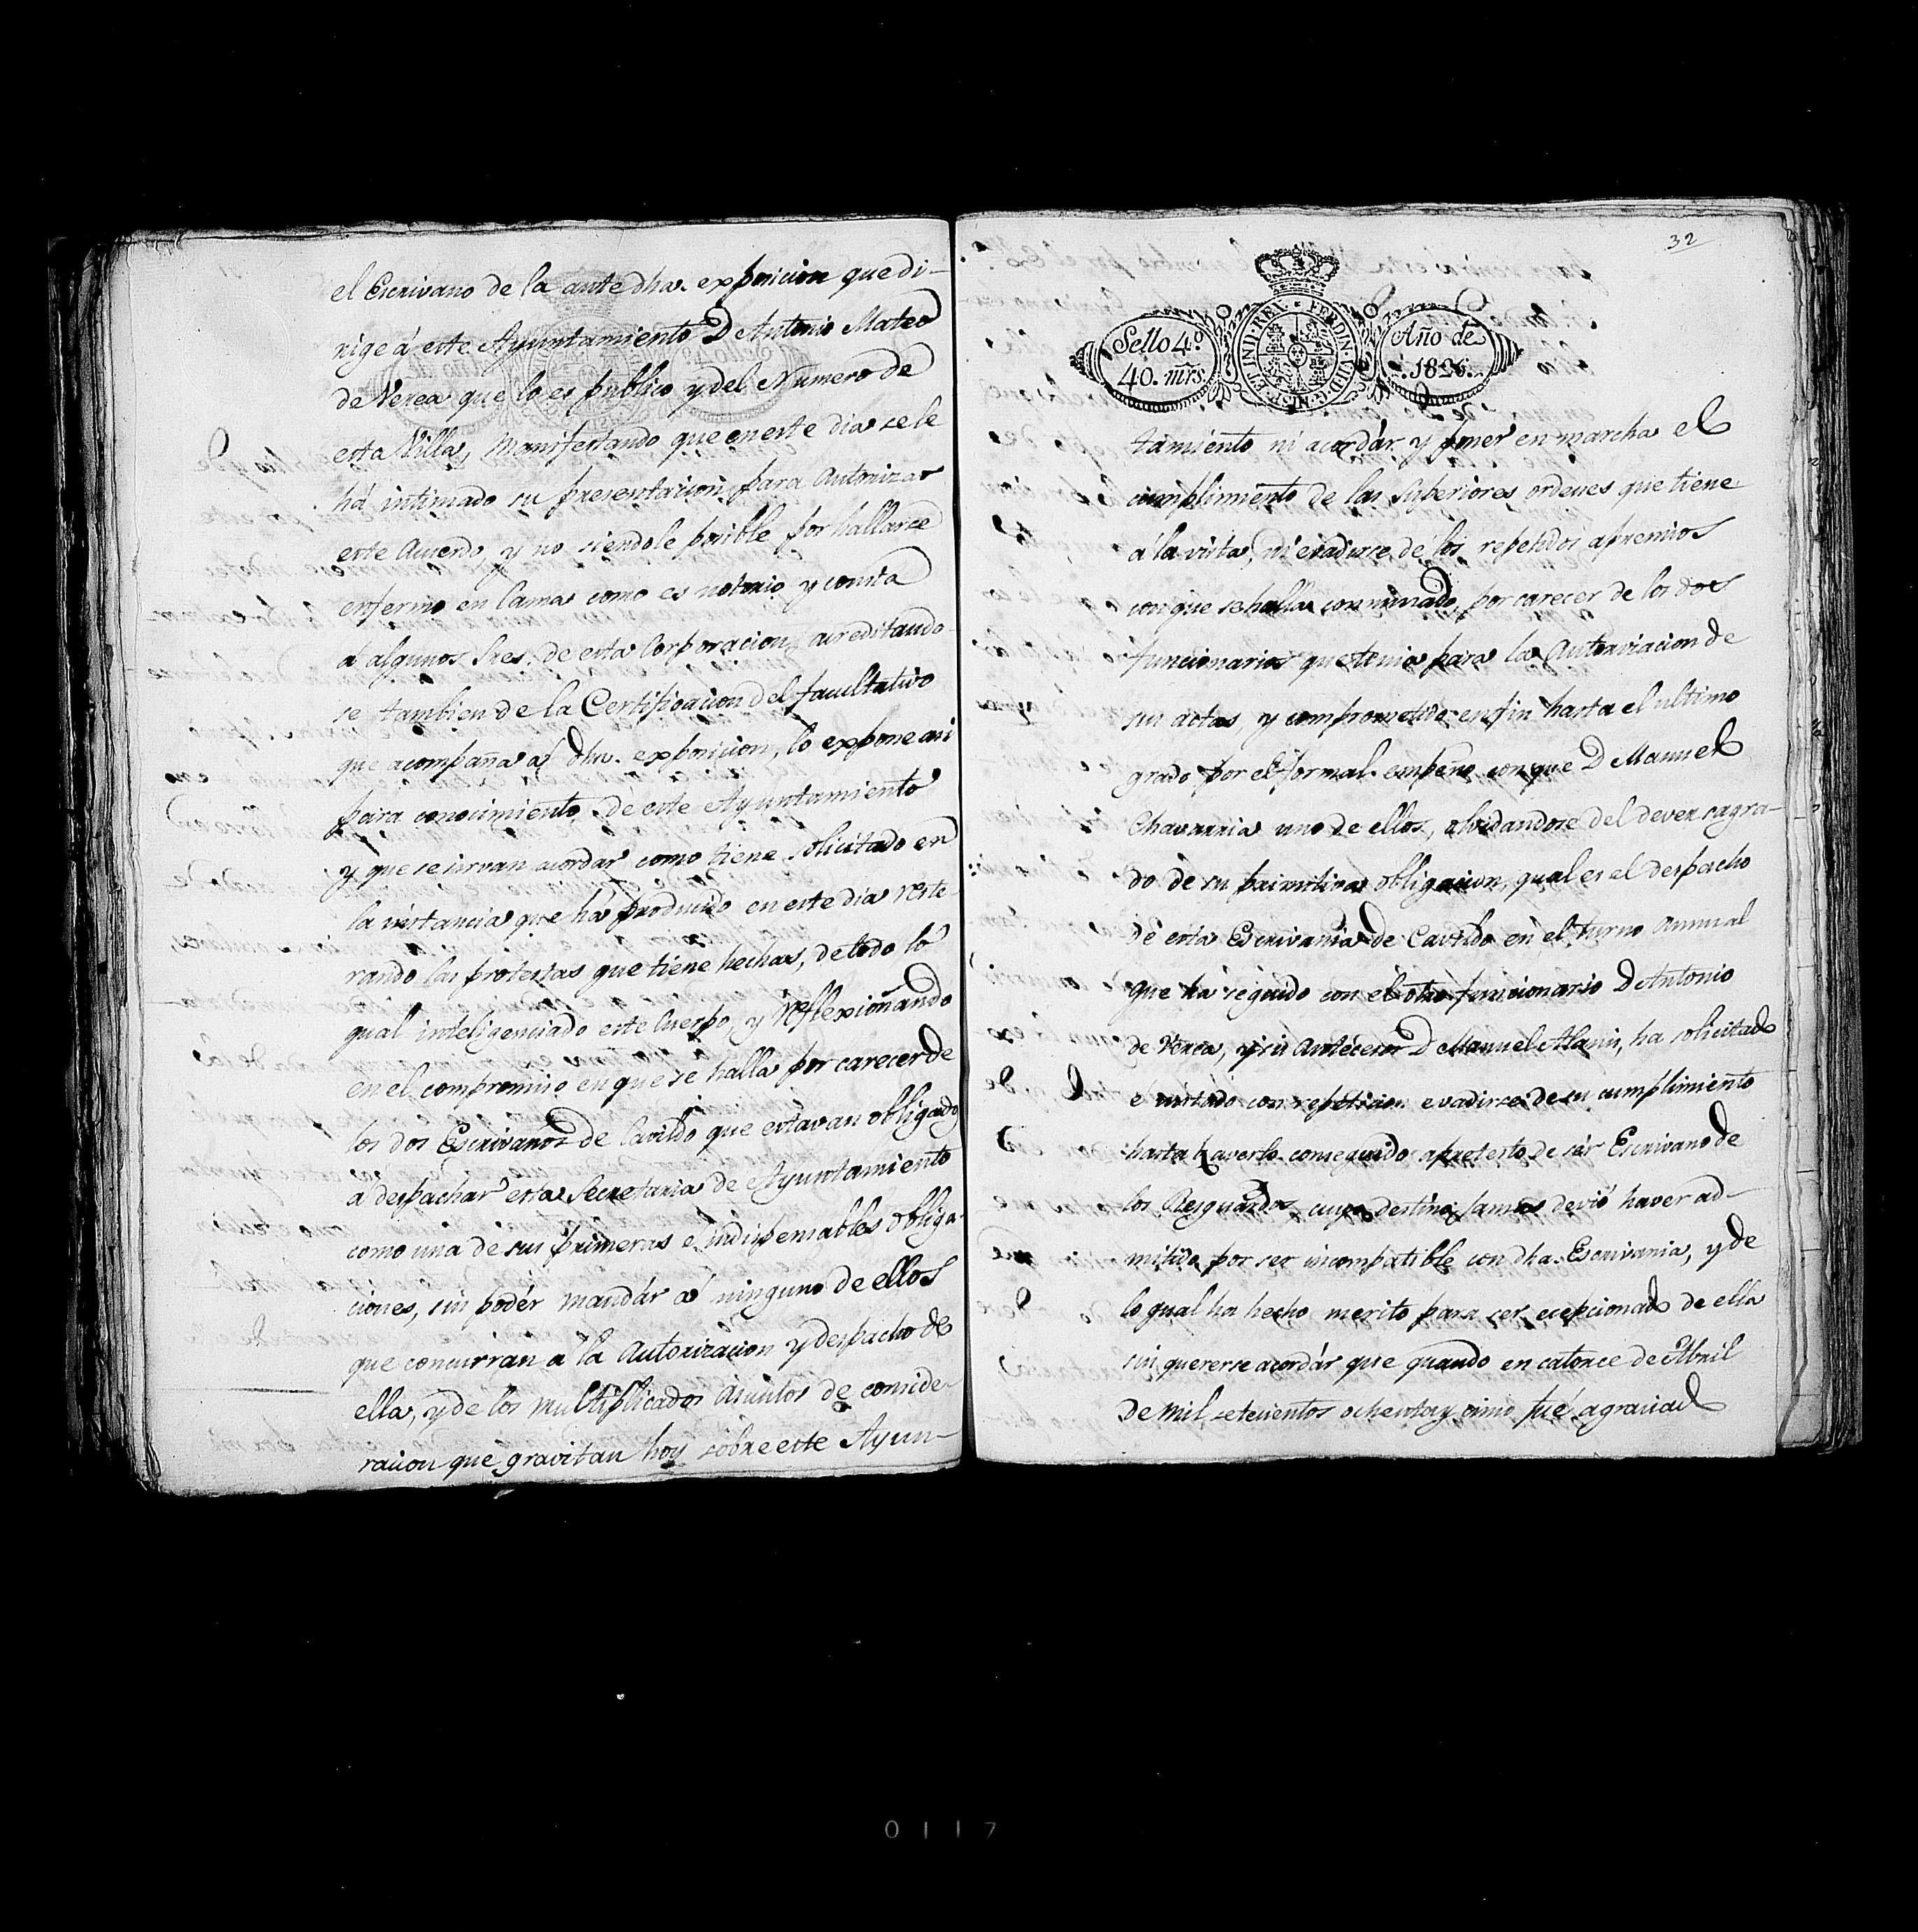 el Escrivano de la ante dha. exposicion que di-
rige á este Ayuntamiento D Antonio Mateo
de Verea que lo es publico y del Numero de
esta Villa, manifestando que en este dia se le
há intimado su presentacion para Autorizar
este Acuerdo, y no siendole posible por hallarse
enfermo en Cama como es notorio y consta
a algunos Sres. de esta Corporacion, acreditando
se tambien de la Certificacion del facultativo
que acompaña á dha. exposicion, lo expone asi
para conocimiento de este Ayuntamiento
y que se sirvan acordar como tiene solicitado en
la instancia que há producido en este dia reite-
rando las protestas que tiene hechas, de todo lo
qual inteligenciado este Cuerpo, y reflexionando
en el compromiso en que se halla por carecer de
los dos Escrivanos de Cavildo que estavan obligados
a despachar esta Secretaria de Ayuntamiento
como una de sus primeras e indispensables obliga-
ciones, sin podér mandár á ninguno de ellos
que concurran a la Autorizacion y despacho de
ella, y de los multiplicados Asuntos de conside-
racion que gravitan hoy sobre este Ayun-
32
Sello 4.º
40. mrs.
HISP. ET IND. REX. FERDIN. VII. D. G.
Año de
1826.
tamiento ni acordár y poner en marcha el
cumplimiento de las Superiores ordenes que tiene
á la vista, ni evadirse de los repetidos apremios
con que se halla conminado, por carecer de los dos
funcionarios que tenia para la Autorizacion de
sus actas, y comprometido en fin hasta el ultimo
grado por el formal empeño con que D Manuel
Chavarria uno de ellos, olvidandose del dever sagra-
do de su primitiva obligacion, qual es el despacho
de esta Escrivania de Cavildo en el turno Annual
que ha seguido con el otro funcionario D Antonio
de Verea, y su Antecesor D Manuel Alanis, ha solicitado
é instado con repeticion evadirse de su cumplimiento
hasta haverlo conseguido a pretesto de sér Escrivano de
los Resguardos, cuyo destino jamas devió haver ad-
mitido por ser incompatible con dha. Escrivania, y de
lo qual ha hecho merito para ser ecepcionado de ella
sin quererse acordár que quando en catorce de Abril
de mil setecientos ochenta y cinco fué agraciado
0117